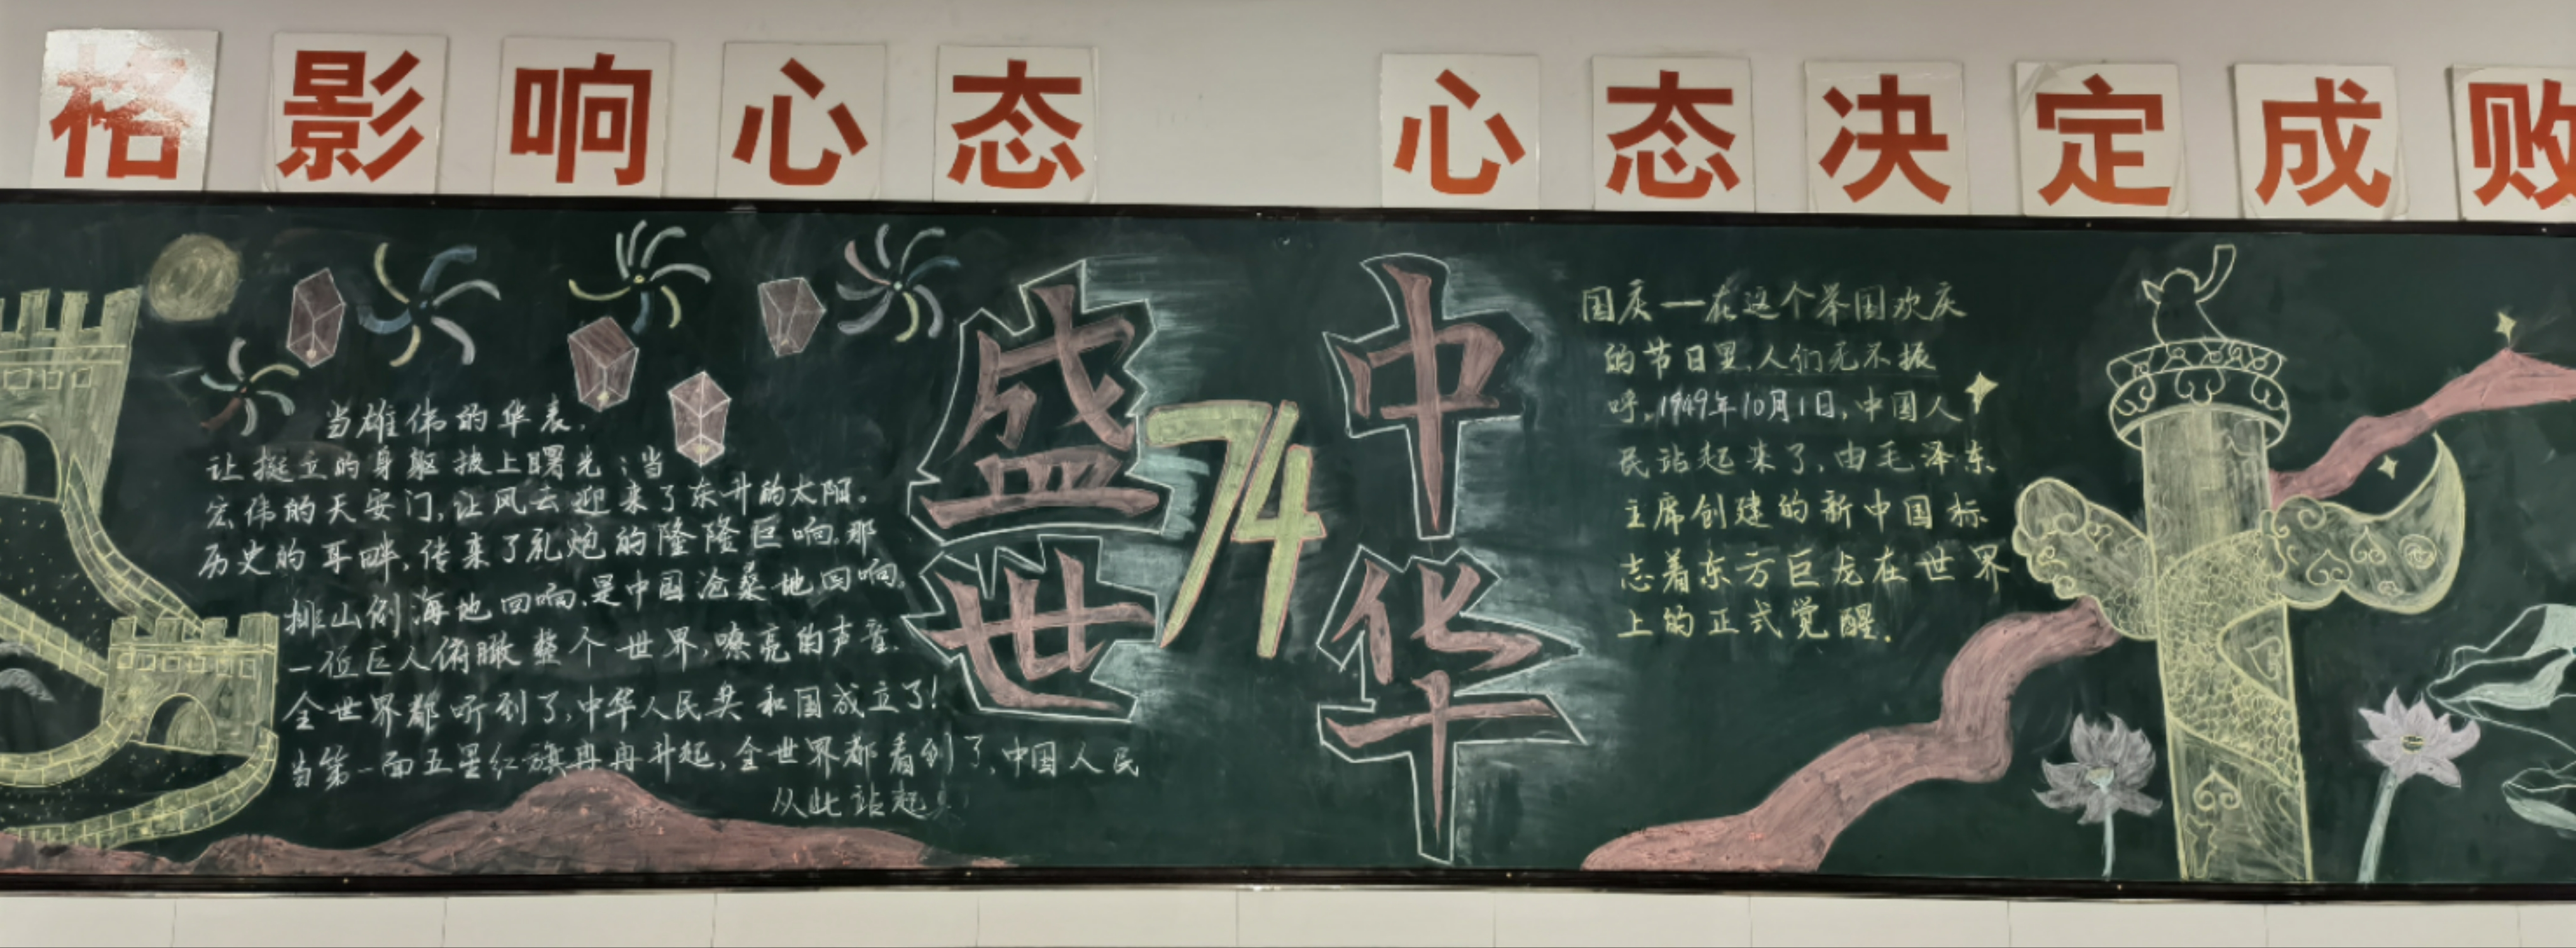 格影响心态 心态决定成败
当雄伟的华表，
让挺立的身躯披上曙光；当
宏伟的天安门，让风云迎来了东升的太阳。
历史的耳畔，传来了礼炮的隆隆巨响，那
排山倒海地回响，是中国沧桑地回响。
一位巨人俯瞰整个世界，嘹亮的声音，
全世界都听到了，中华人民共和国成立了！
当第一面五星红旗冉冉升起，全世界都看到了，中国人民
从此站起
盛世
74
中华
国庆一一在这个举国欢庆
的节日里，人们无不振
呼，1949年10月1日，中国人
民站起来了，由毛泽东
主席创建的新中国标
志着东方巨龙在世界
上的正式觉醒．